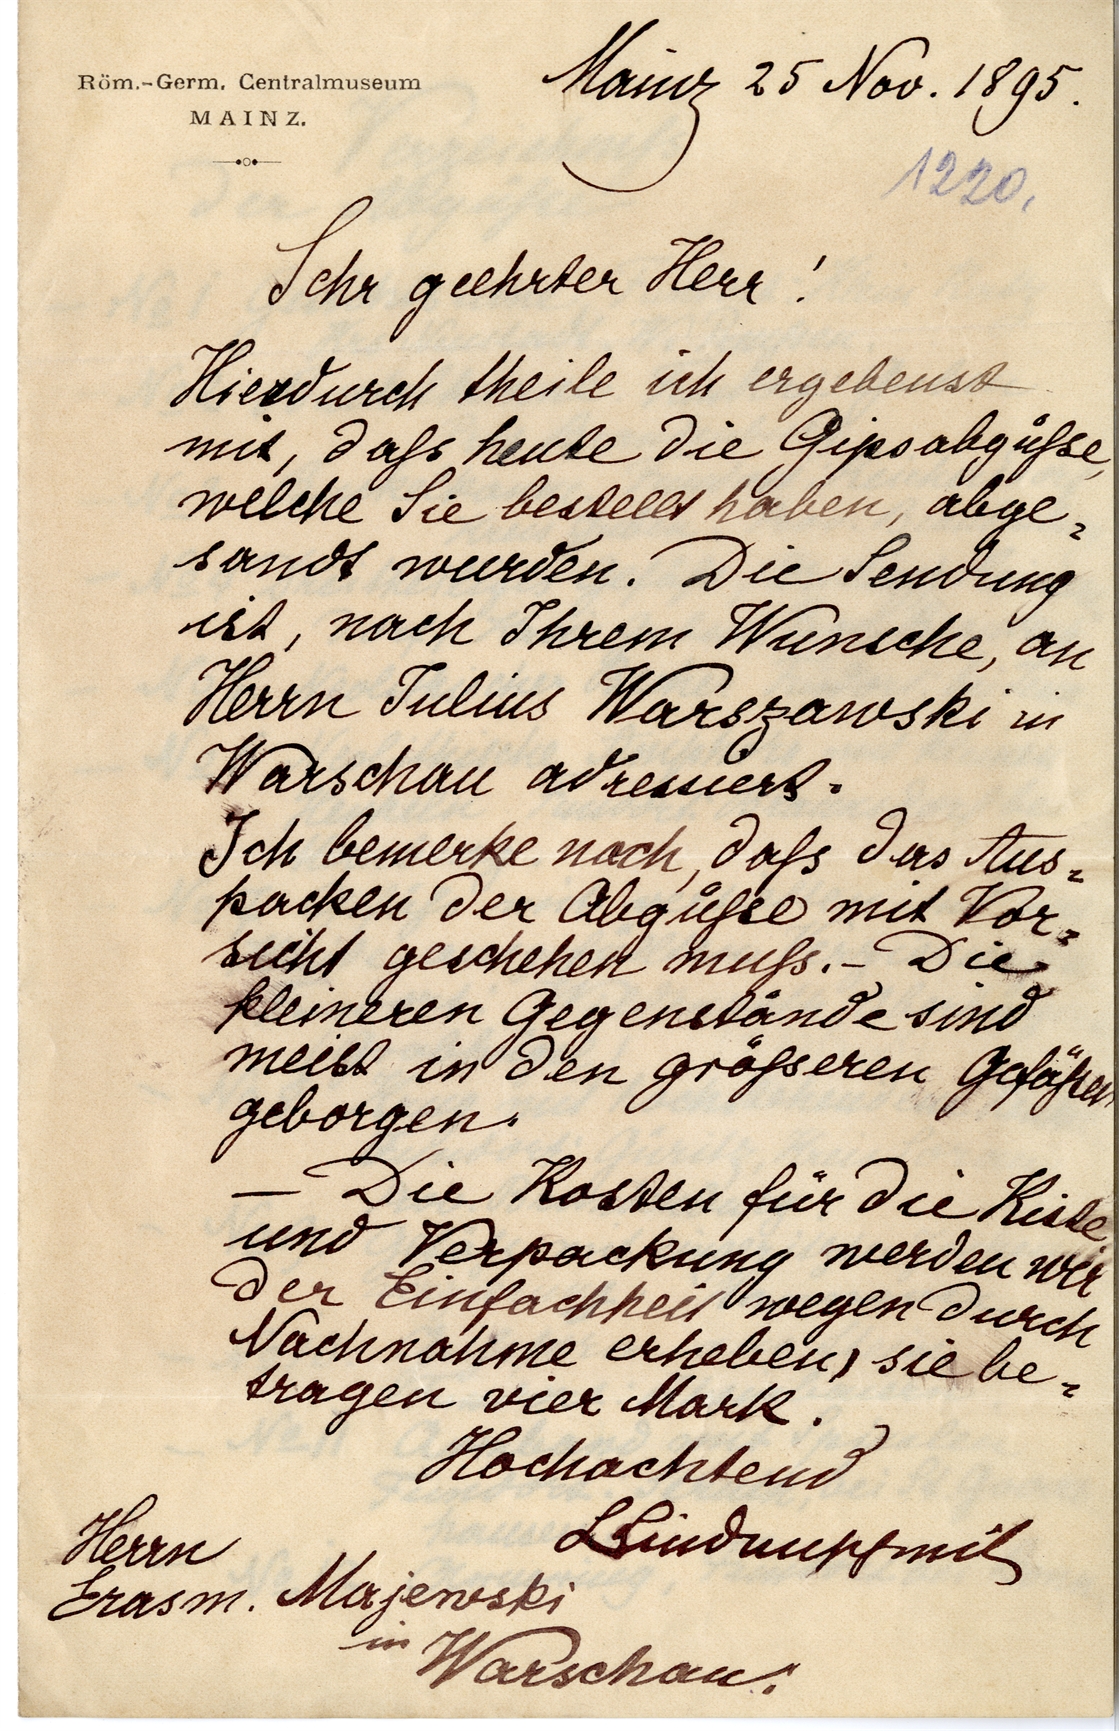 Röm.-Germ. Centralmuseum
MAINZ.
Mainz 25 Nov. 1895.
1220.
Sehr geehrter Herr!
Hierdurch theile ich ergebenst
mit, daſs heute die Gipsabgüſse,
welche Sie bestellt haben, abge=
sandt wurden. Die Sendung
ist, nach Ihrem Wunsche, an
Herrn Julius Warszawski in
Warschau adressiert.
Ich bemerke noch, daſs das Aus=
packen der Abgüſse mit Vor=
sicht geschehen muſs. – Die
kleineren Gegenstände sind
meist in den gröſseren Gefäſsen
geborgen.
– Die Kosten für die Kiste
und Verpackung werden wir
der Einfachheit wegen durch
Nachnahme erheben, sie be=
tragen vier Mark.
Hochachtend
L Lindenschmit
Herrn
Erasm. Majewski
in
Warschau.